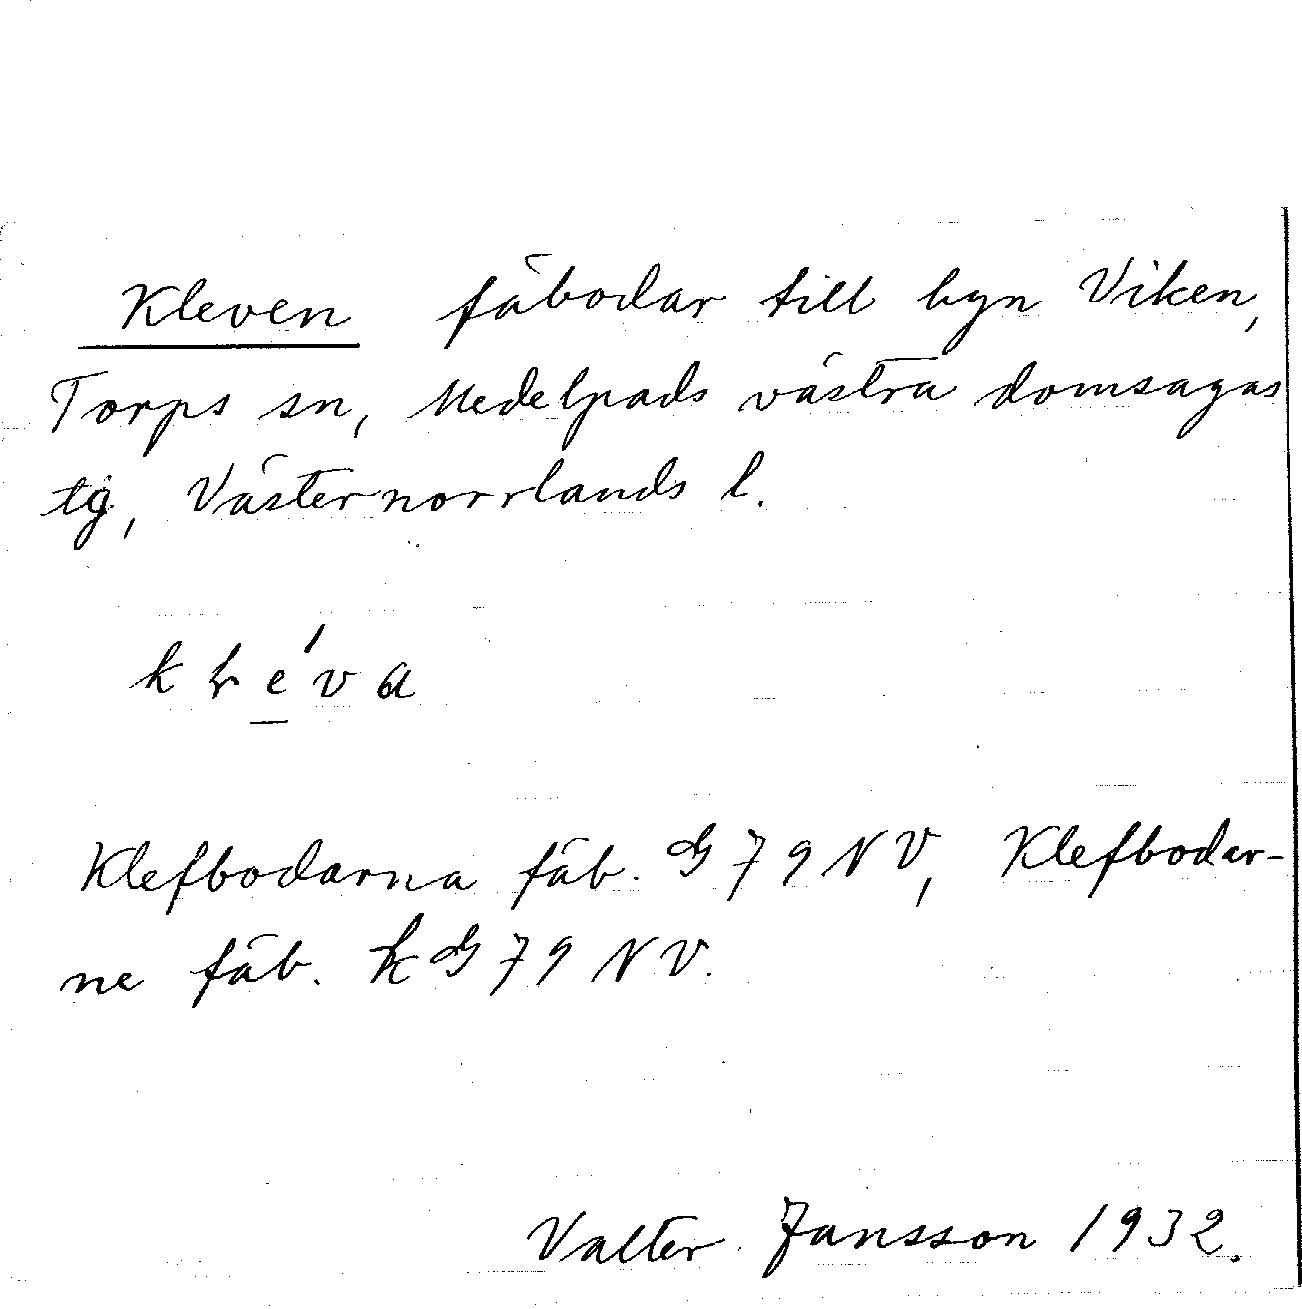 Kleven fäbodar till byn Viken,
Torps sn, Medelpads västra domsagas
tg, Västernorrlands l.
Klefbodarna fäb. G 79 NV, Klefbodar-
ne fäb. kG 79 NV.
Valter Jansson 1932.